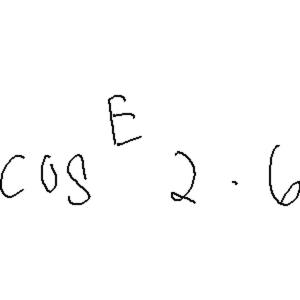 cos^E 2 . 6